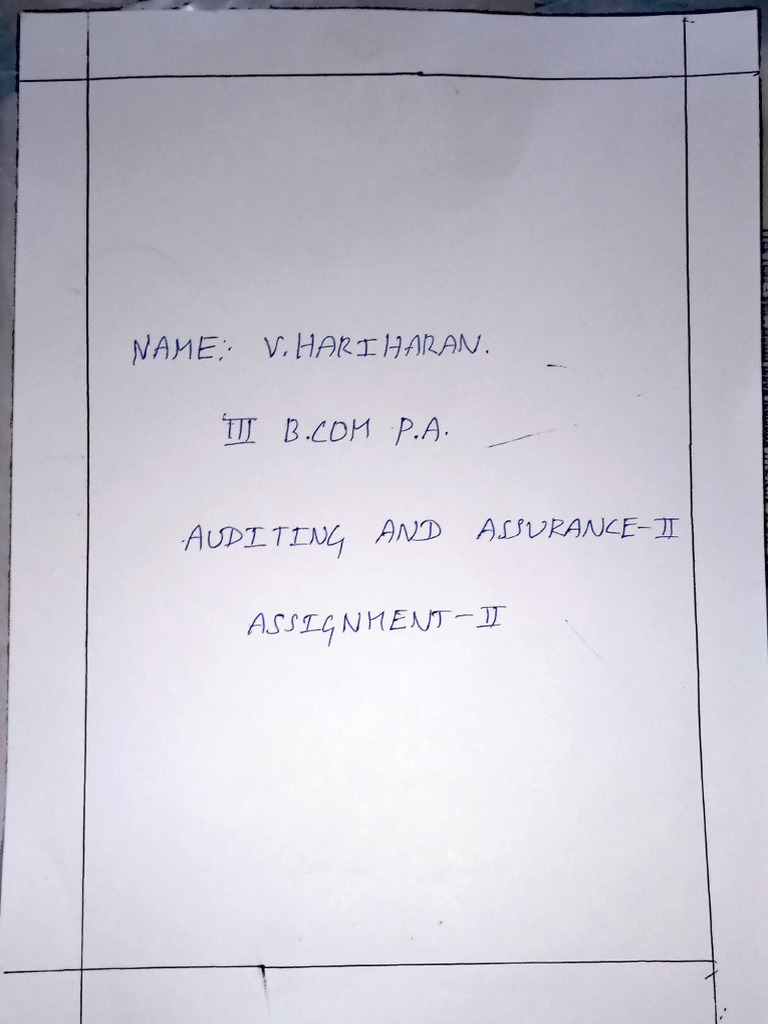 NAME:- V. HARIHARAN.
III B.COM P.A.
AUDITING AND ASSURANCE-II
ASSIGNMENT-II